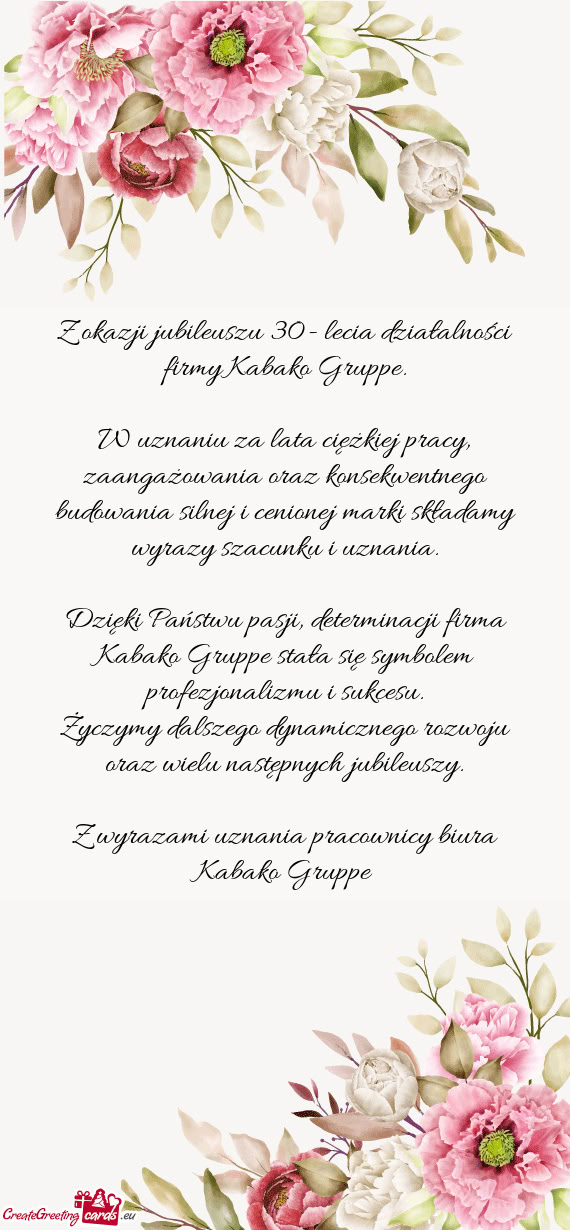 Z okazji jubileuszu 30 - lecia działalności
firmy Kabako Gruppe.
W uznaniu za lata ciężkiej pracy,
zaangażowania oraz konsekwentnego
budowania silnej i cenionej marki składamy
wyrazy szacunku i uznania.
Dzięki Państwu pasji, determinacji firma
Kabako Gruppe stała się symbolem
profezjonalizmu i sukcesu.
Życzymy dalszego dynamicznego rozwoju
oraz wielu następnych jubileuszy.
Z wyrazami uznania pracownicy biura
Kabako Gruppe
CreateGreeting cards .eu